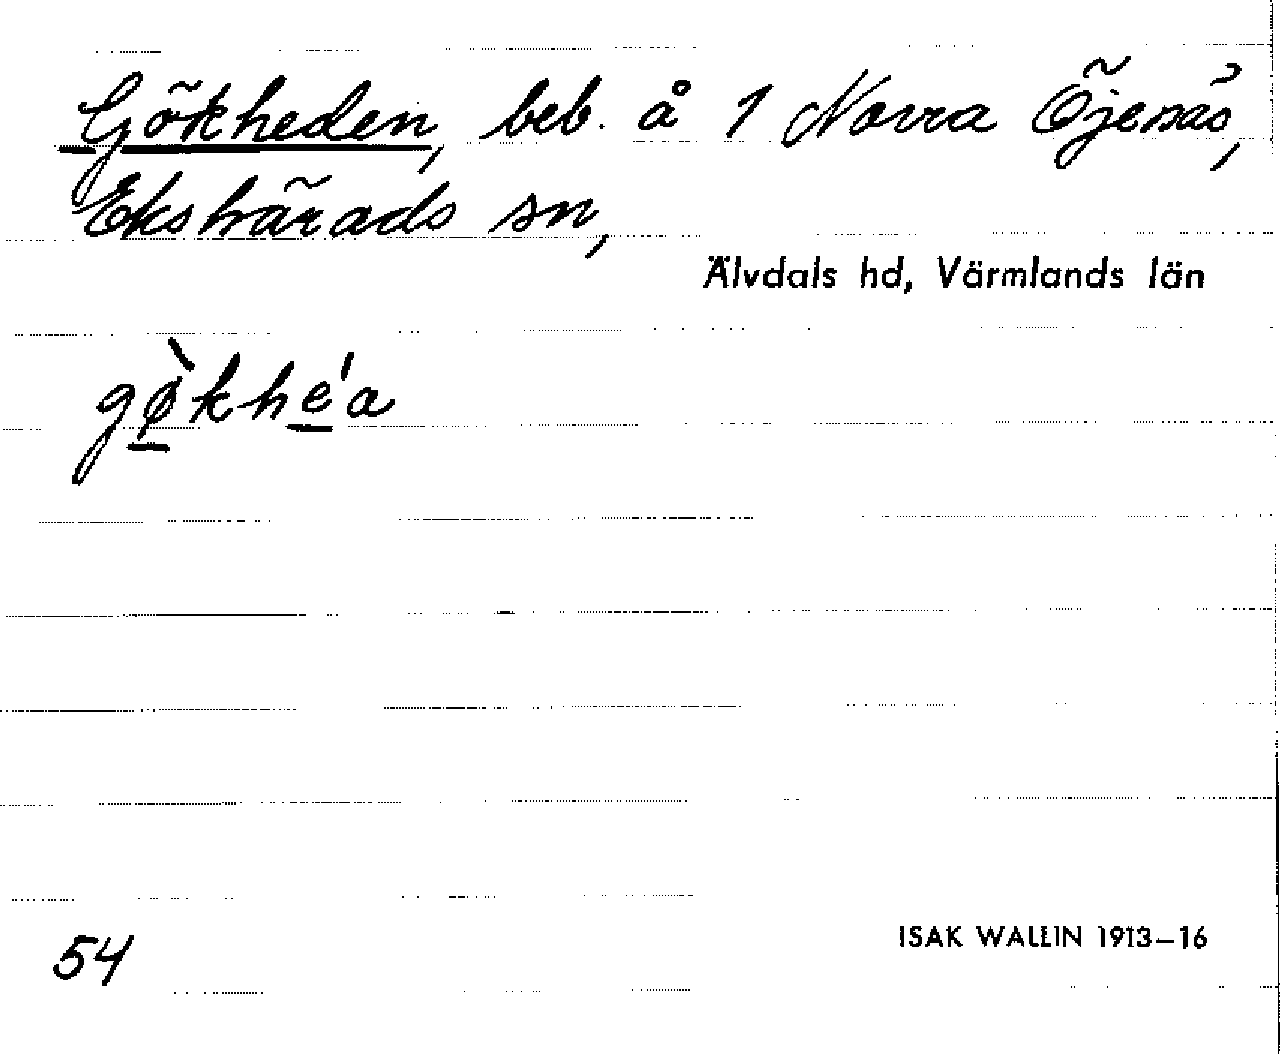 Gökheden, beb. å 1 Norra Öjenäs,
Ekshärads sn,
Älvdals hd, Värmlands län
gø̀khe'a
54
ISAK WALLIN 1913–16